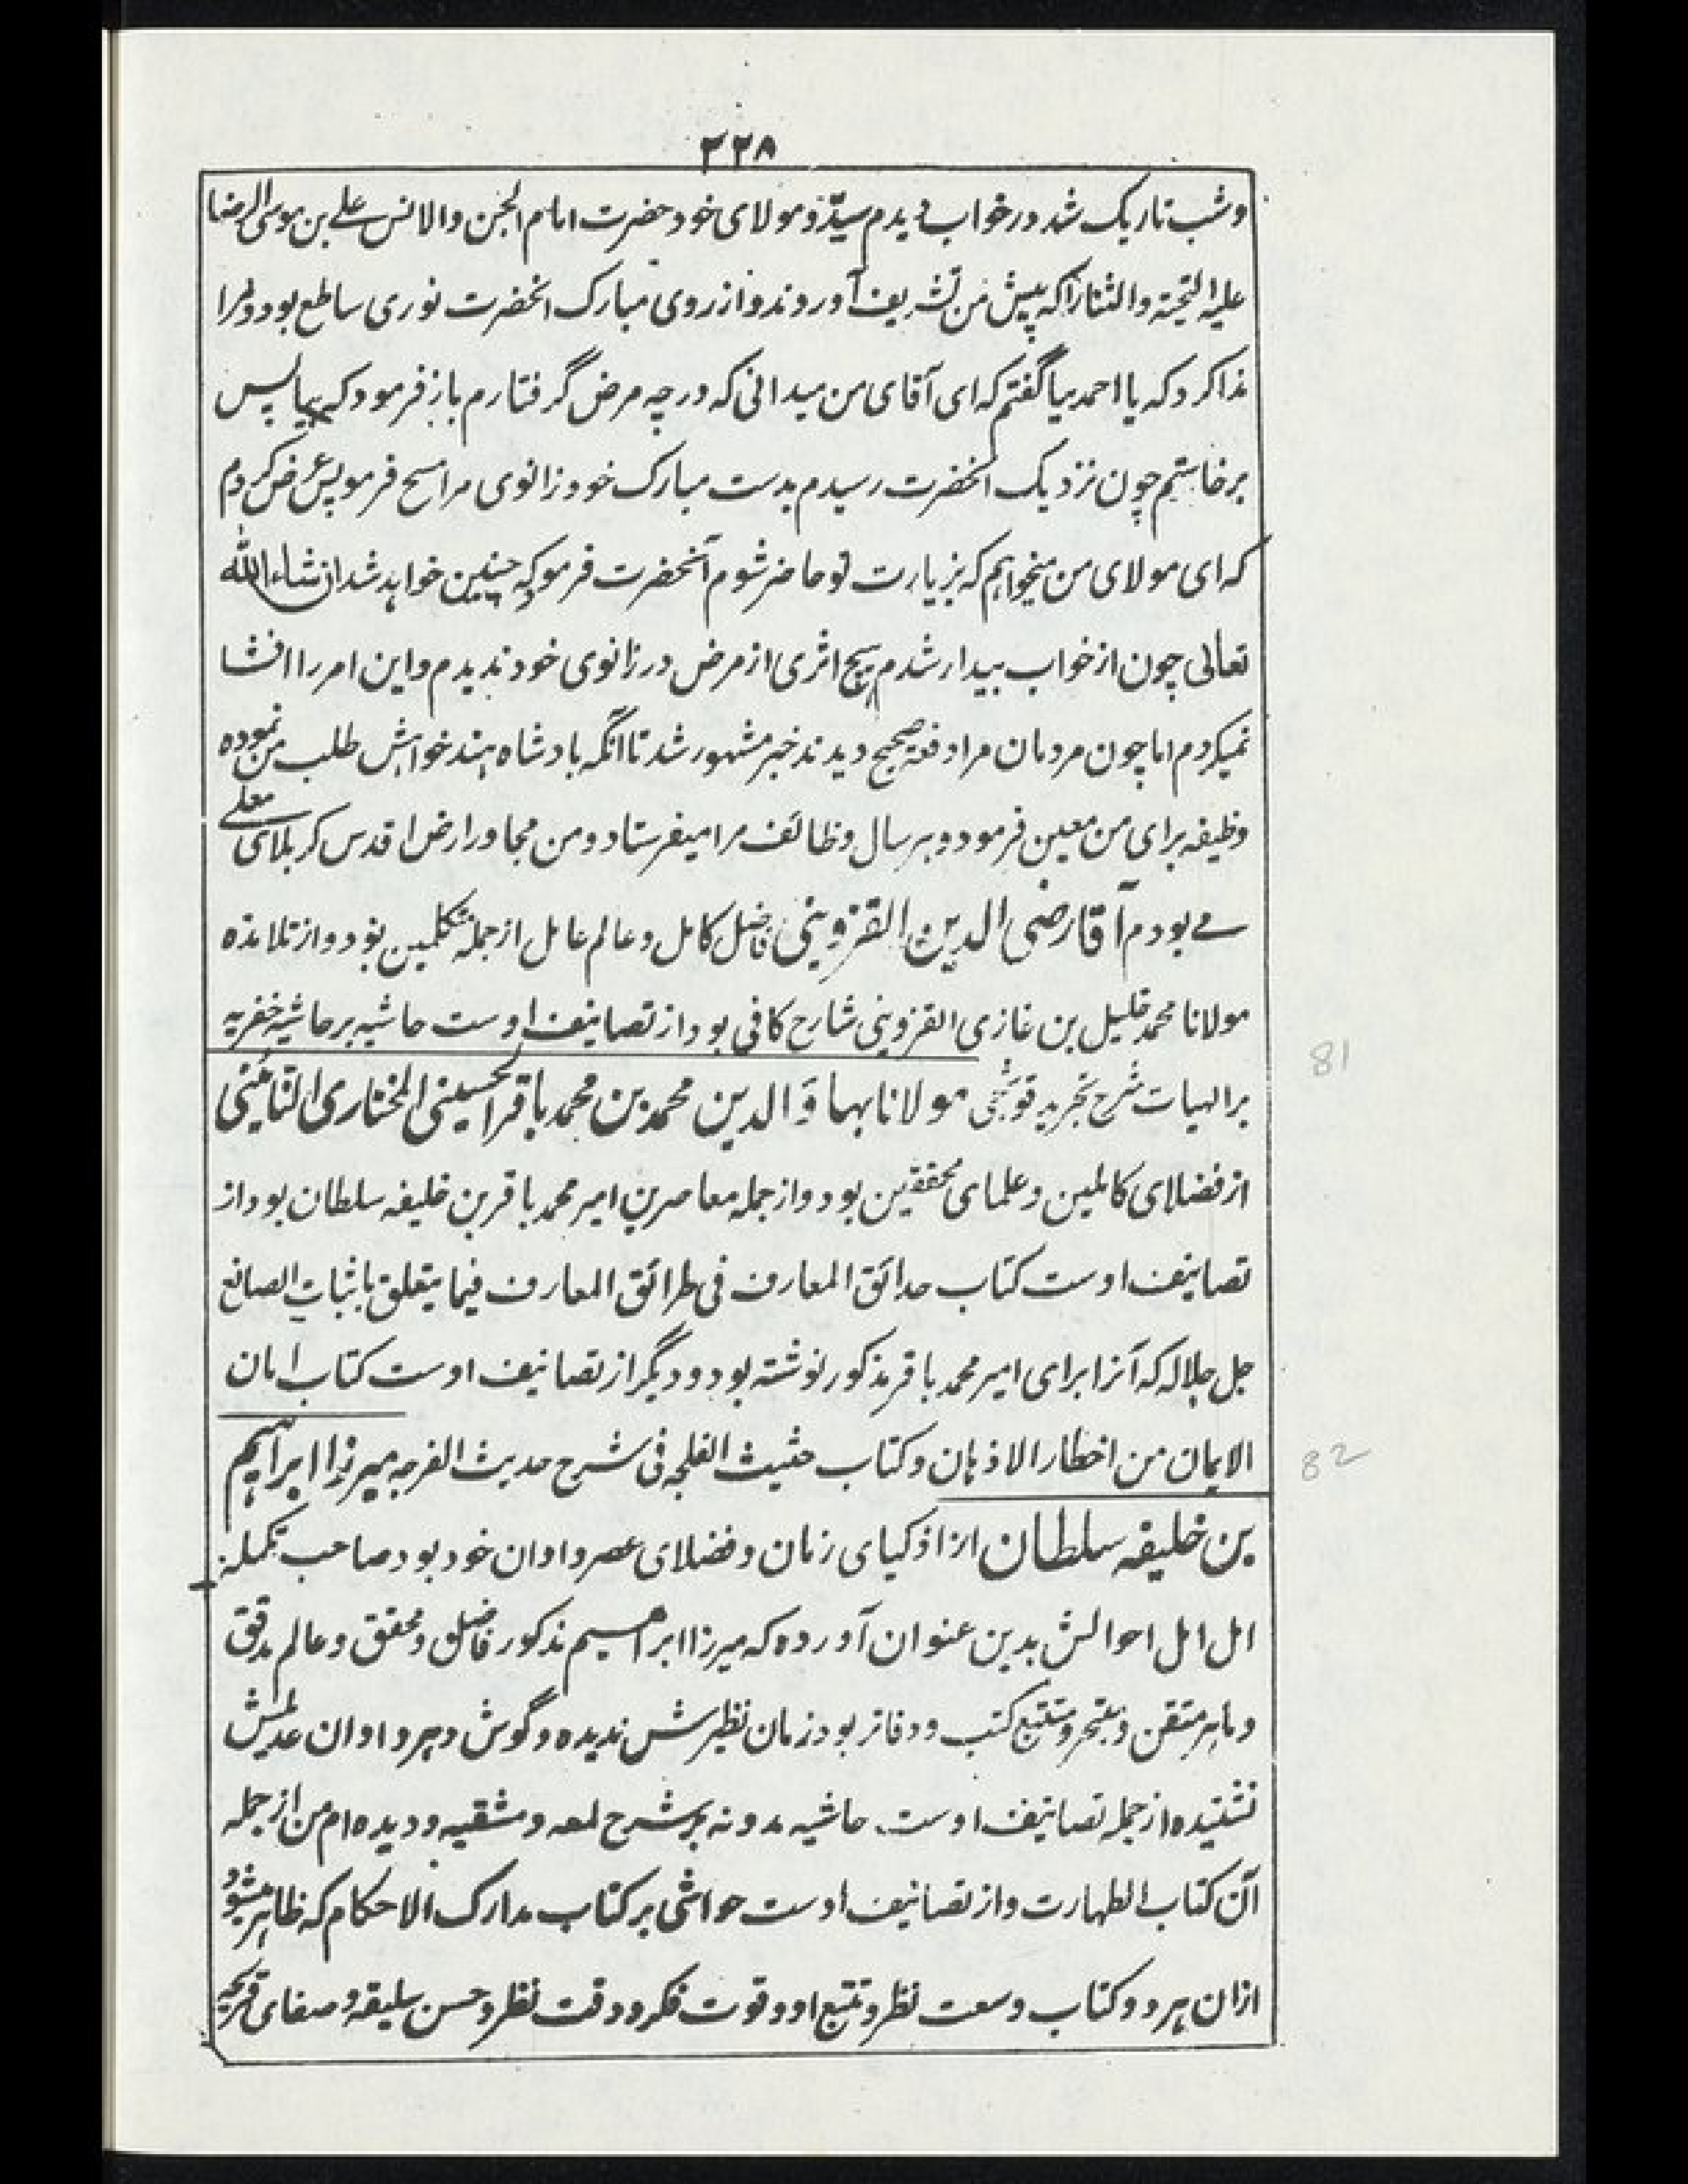 ۲۲۸
وشب تاریک شد در خواب دیدم سید و مولای خود حضرت امام الجن والانس علی بن موسی الرضا
علیه التحیة والثنا را که پیش من تشریف آوردند و از روی مبارک آنحضرت نوری ساطع بود و مرا
ندا کرد که یا احمد بیا گفتم که ای آقای من میدانی که در چه مرض گرفتارم باز فرمود که بیا پس
برخاستیم چون نزدیک آنحضرت رسیدم بدست مبارک خود زانوی مرا مسح فرمود پس عرض کردم
که ای مولای من میخواهم که بزیارت تو حاضر شوم آنحضرت فرمود که چنین خواهد شد ان شاء الله
تعالی چون از خواب بیدار شدم هیچ اثری از مرض در زانوی خود ندیدم و این امر را افشا
نمیکردم اما چون مردمان مرا دفعة صحیح دیدند خبر مشهور شد تا آنکه بادشاه هند خواهش طلب من نموده
وظیفه برای من معین فرمود و هر سال وظائف مرا میفرستاد و من مجاور ارض اقدس کربلای معلی
مے بودم آقا رضی الدین القزوینی فاضل کامل و عالم عامل از جمله متکلمین بود و از تلامذه
مولانا محمد خلیل بن غازی القزوینی شارح کافی بود از تصانیف اوست حاشیه بر حاشیه خفریه
بر الهیات شرح تجرید قوشجی مولانا بهاؤ الدین محمد بن محمد باقر الحسینی المختاری النائینی
از فضلای کاملین و علمای محققین بود و از جمله معاصرین امیر محمد باقر بن خلیفه سلطان بود از
تصانیف اوست کتاب حدائق المعارف فی طرائق المعارف فیما یتعلق باثبات الصانع
جل جلاله که آنرا برای امیر محمد باقر مذکور نوشته بود و دیگر از تصانیف اوست کتاب امان
الایمان من اخطار الاذهان و کتاب حثیث الفلجه فی شرح حدیث الفرجه میرزا ابراهیم
بن خلیفه سلطان از اذکیای زمان و فضلای عصر و اوان خود بود صاحب تکمله
امل امل احوالش بدین عنوان آورده که میرزا ابراهیم مذکور فاضل و محقق و عالم مدقق
و ماهر متقن و متبحر و متتبع کتب و دفاتر بود زمان نظیرش ندیده و گوش دهر و اوان عدیلش
نشنیده از جمله تصانیف اوست حاشیه مدونه بر شرح لمعه دمشقیه و دیده ام من از جمله
آن کتاب الطهارت و از تصانیف اوست حواشی بر کتاب مدارک الاحکام که ظاهر میشود
ازان هر دو کتاب وسعت نظر و تتبع او و قوت فکر و دقت نظر و حسن سلیقه و صفای قریحه
81
82